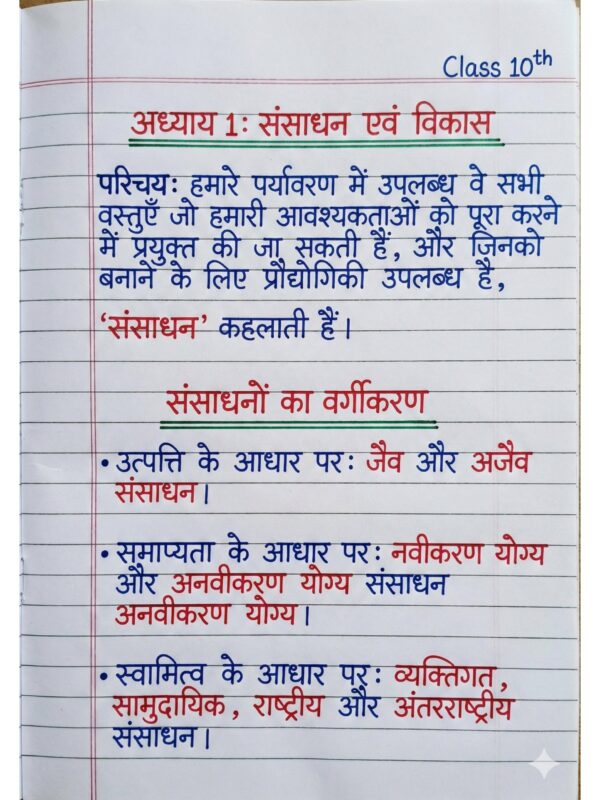 Class 10th
अध्याय 1: संसाधन एवं विकास
परिचय: हमारे पर्यावरण में उपलब्ध वे सभी
वस्तुएँ जो हमारी आवश्यकताओं को पूरा करने
में प्रयुक्त की जा सकती हैं, और जिनको
बनाने के लिए प्रौद्योगिकी उपलब्ध है,
‘संसाधन’ कहलाती हैं।
संसाधनों का वर्गीकरण
• उत्पत्ति के आधार पर: जैव और अजैव
संसाधन।
• समाप्यता के आधार पर: नवीकरण योग्य
और अनवीकरण योग्य संसाधन
अनवीकरण योग्य।
• स्वामित्व के आधार पर: व्यक्तिगत,
सामुदायिक, राष्ट्रीय और अंतरराष्ट्रीय
संसाधन।